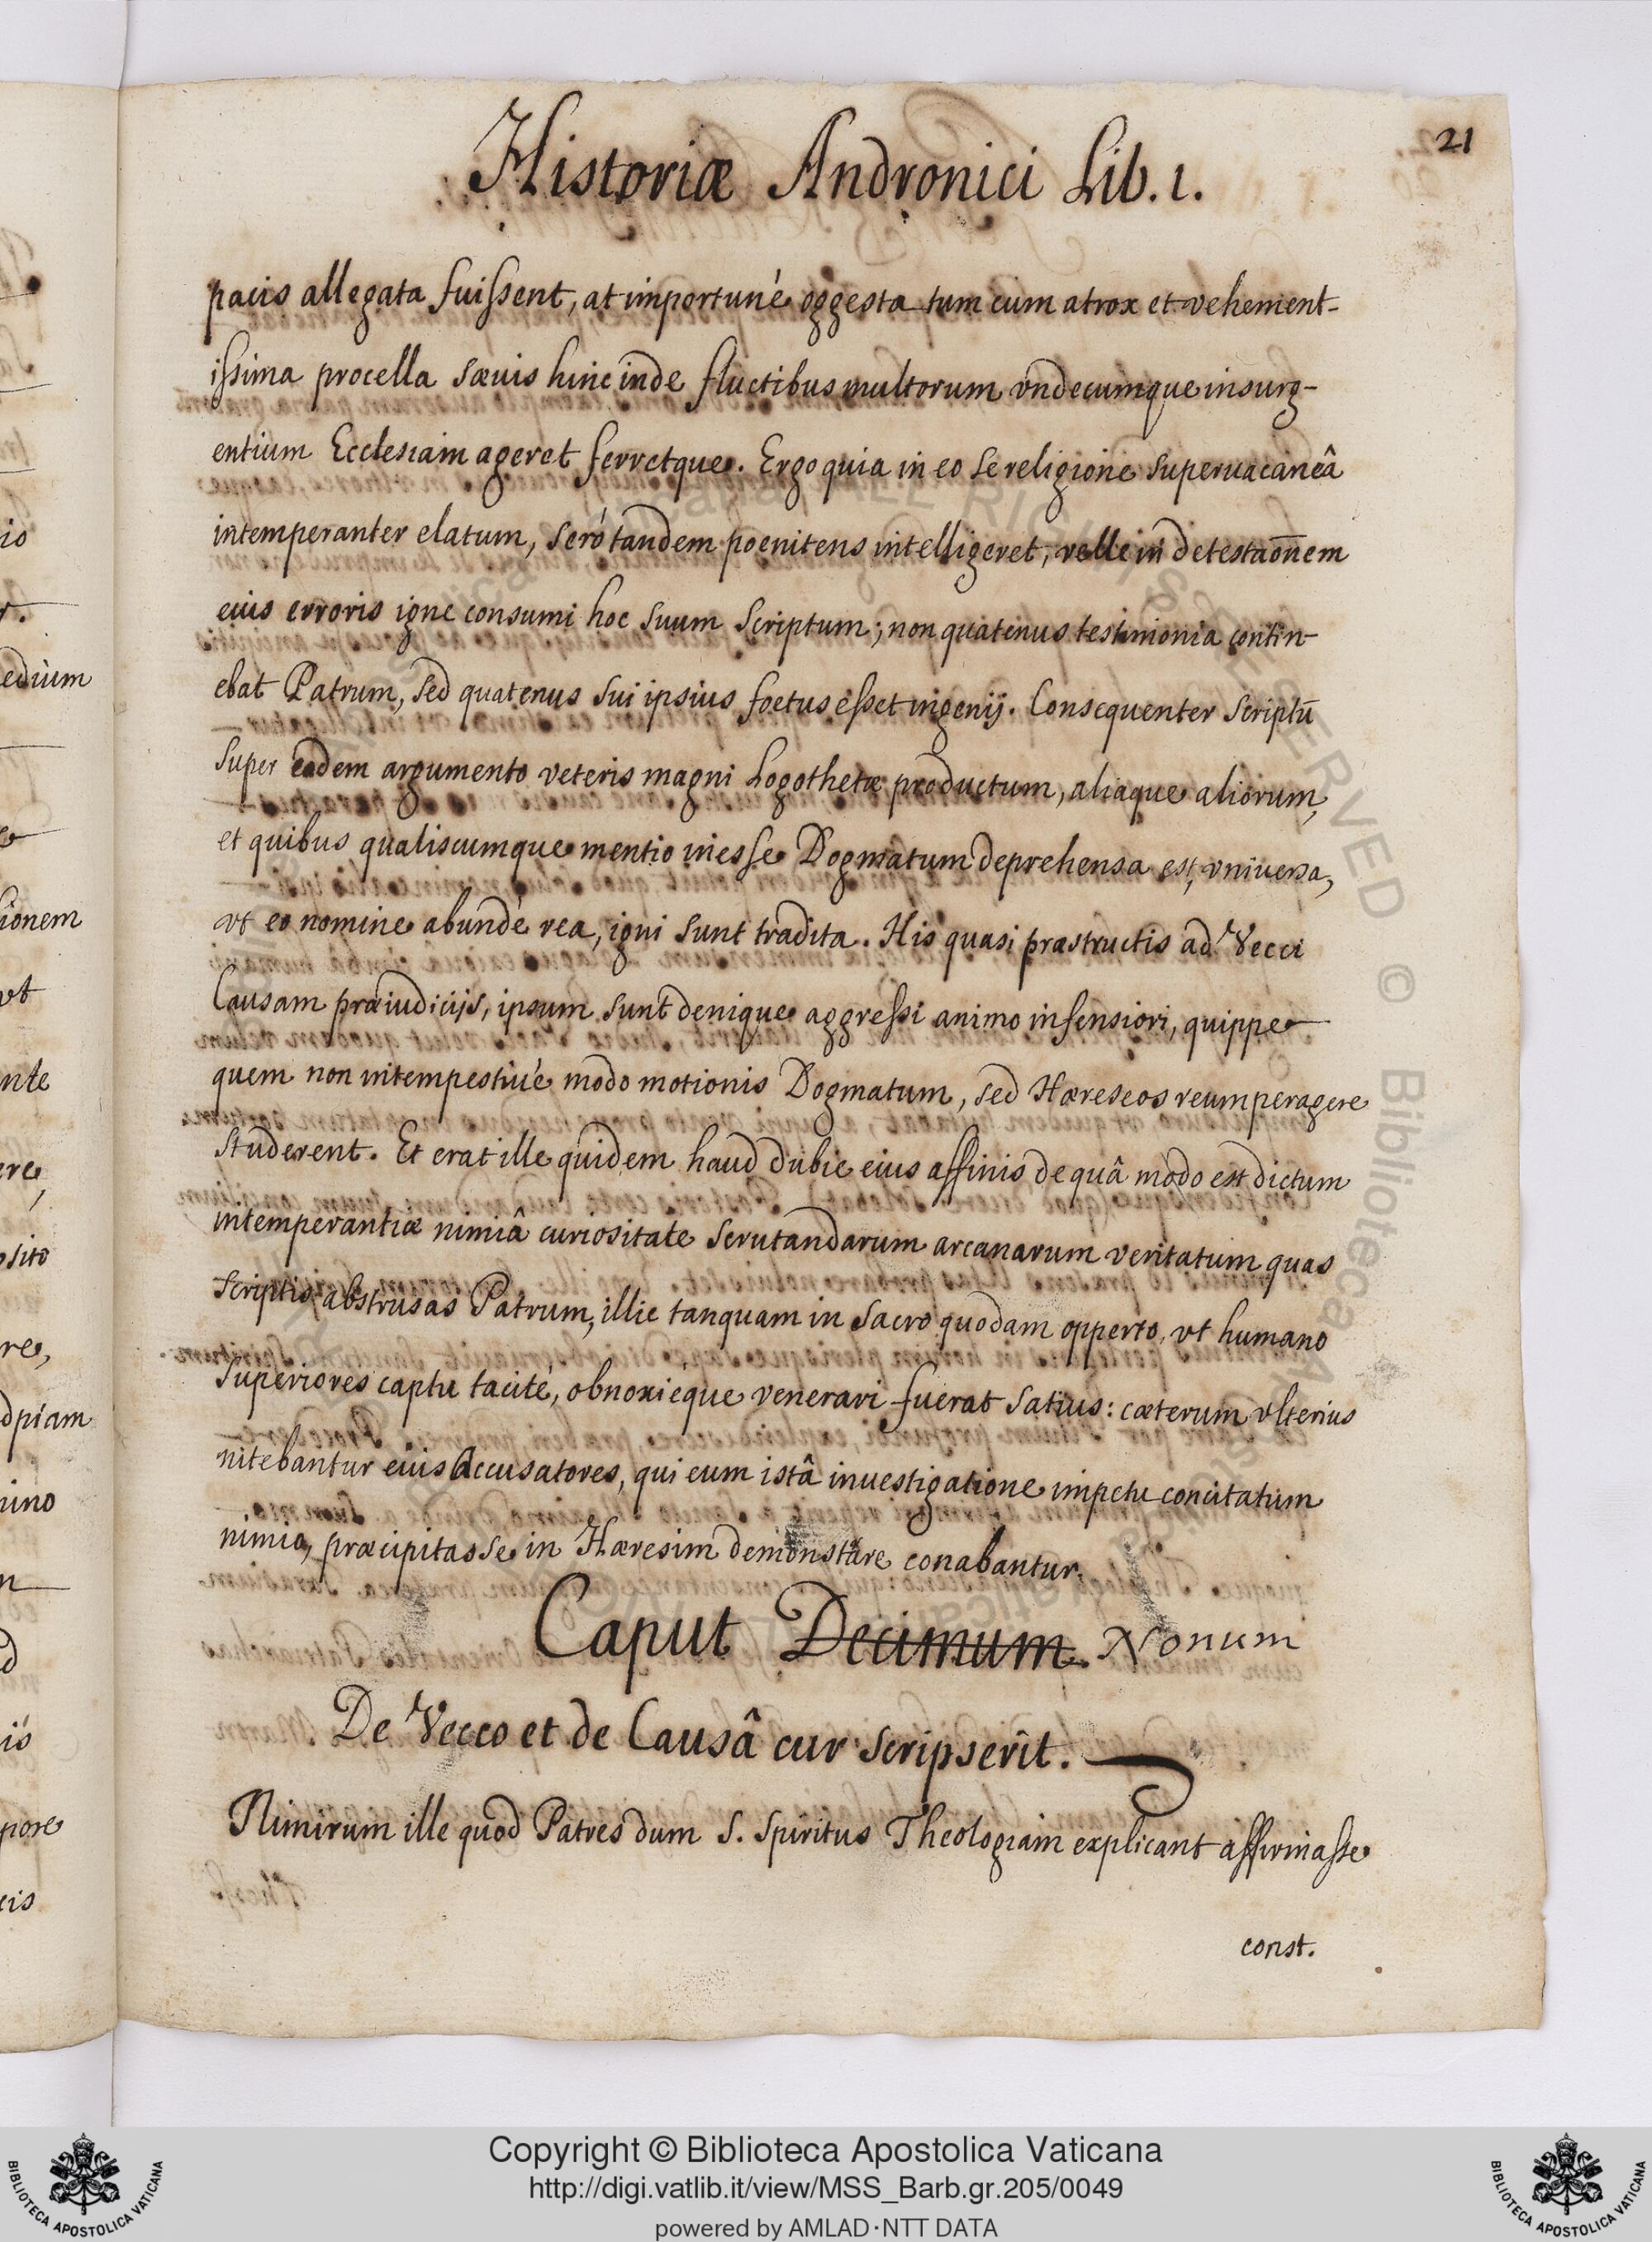 21
Historiæ Andronici Lib. 1.
pacis allegata fuissent, at importuné oggesta tum cum atrox et vehement-
issima procella sæuis hinc inde fluctibus multorum vndecumque insurg-
entium Ecclesiam ageret ferretque. Ergo quia in eo se religione superuacaneâ
intemperanter elatum, seró tandem poenitens intelligeret, velle in detestaōnem
eius erroris igne consumi hoc suum scriptum; non quatenus testimonia contin-
ebat Patrum, sed quatenus sui ipsius foetus esset ingenij. Consequenter scriptū
super eodem argumento veteris magni Logothetæ productum, aliaque aliorum,
et quibus qualiscumque mentio inesse Dogmatum deprehensa est, vniuersa,
vt eo nomine abundé rea, igni sunt tradita. His quasi præstructis ad Vecci
Causam præiudicijs, ipsum sunt denique aggressi animo infensiori, quippe
quem non intempestiué modo motionis Dogmatum, sed Hæreseos reum peragere
studerent. Et erat ille quidem haud dubie eius affinis de quâ modo est dictum
intemperantiæ nimiâ curiositate scrutandarum arcanarum veritatum quas
scriptis abstrusas Patrum, illic tanquam in sacro quodam opperto, vt humano
superiores captu tacité, obnoxiéque venerari fuerat satius: cæterum vlterius
nitebantur eius Accusatores, qui eum istâ inuestigatione impetu concitatum
nimio, præcipitasse in Hæresim demonstare conabantur.
Caput Decimum. Nonum
De Vecco et de Causâ cur scripserit.
Nimirum ille quod Patres dum S. Spiritus Theologiam explicant affirmasse
const.
edium
ionem
vt
nte
ere,
osito
re,
dpiam
uino
pore
cis
Copyright © Biblioteca Apostolica Vaticana
http://digi.vatlib.it/view/MSS_Barb.gr.205/0049
powered by AMLAD·NTT DATA
BIBLIOTECA APOSTOLICA VATICANA
BIBLIOTECA APOSTOLICA VATICANA